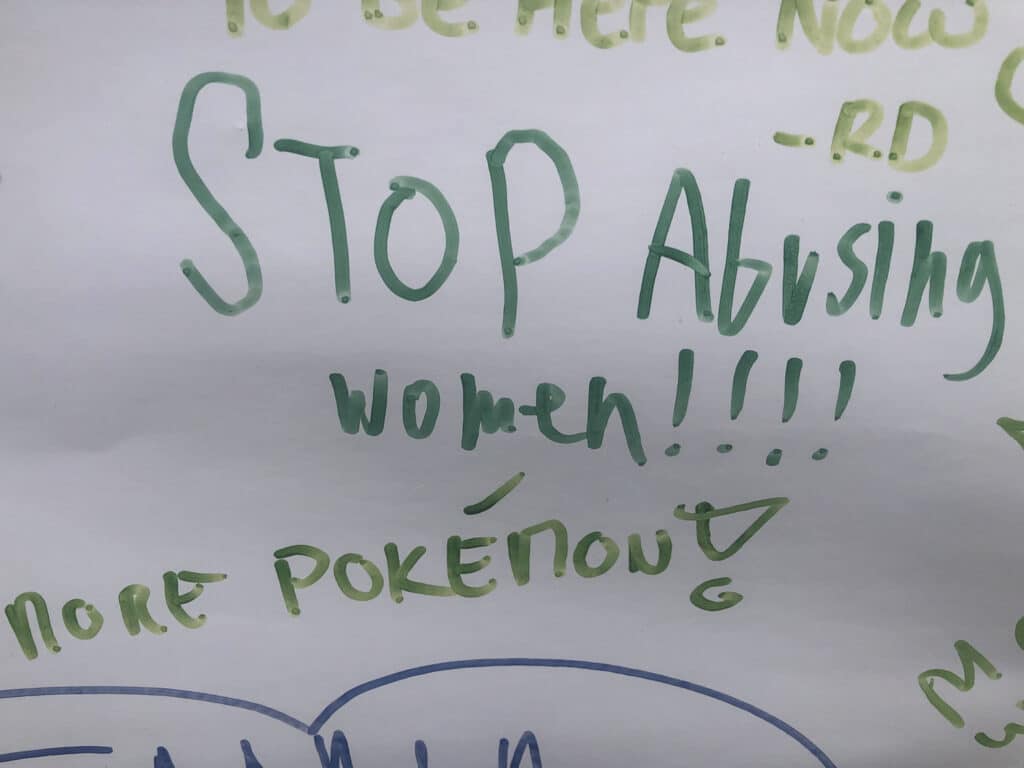 To Be Here Now
-RD
STOP Abusing
women!!!!
MORE POKÉMON!